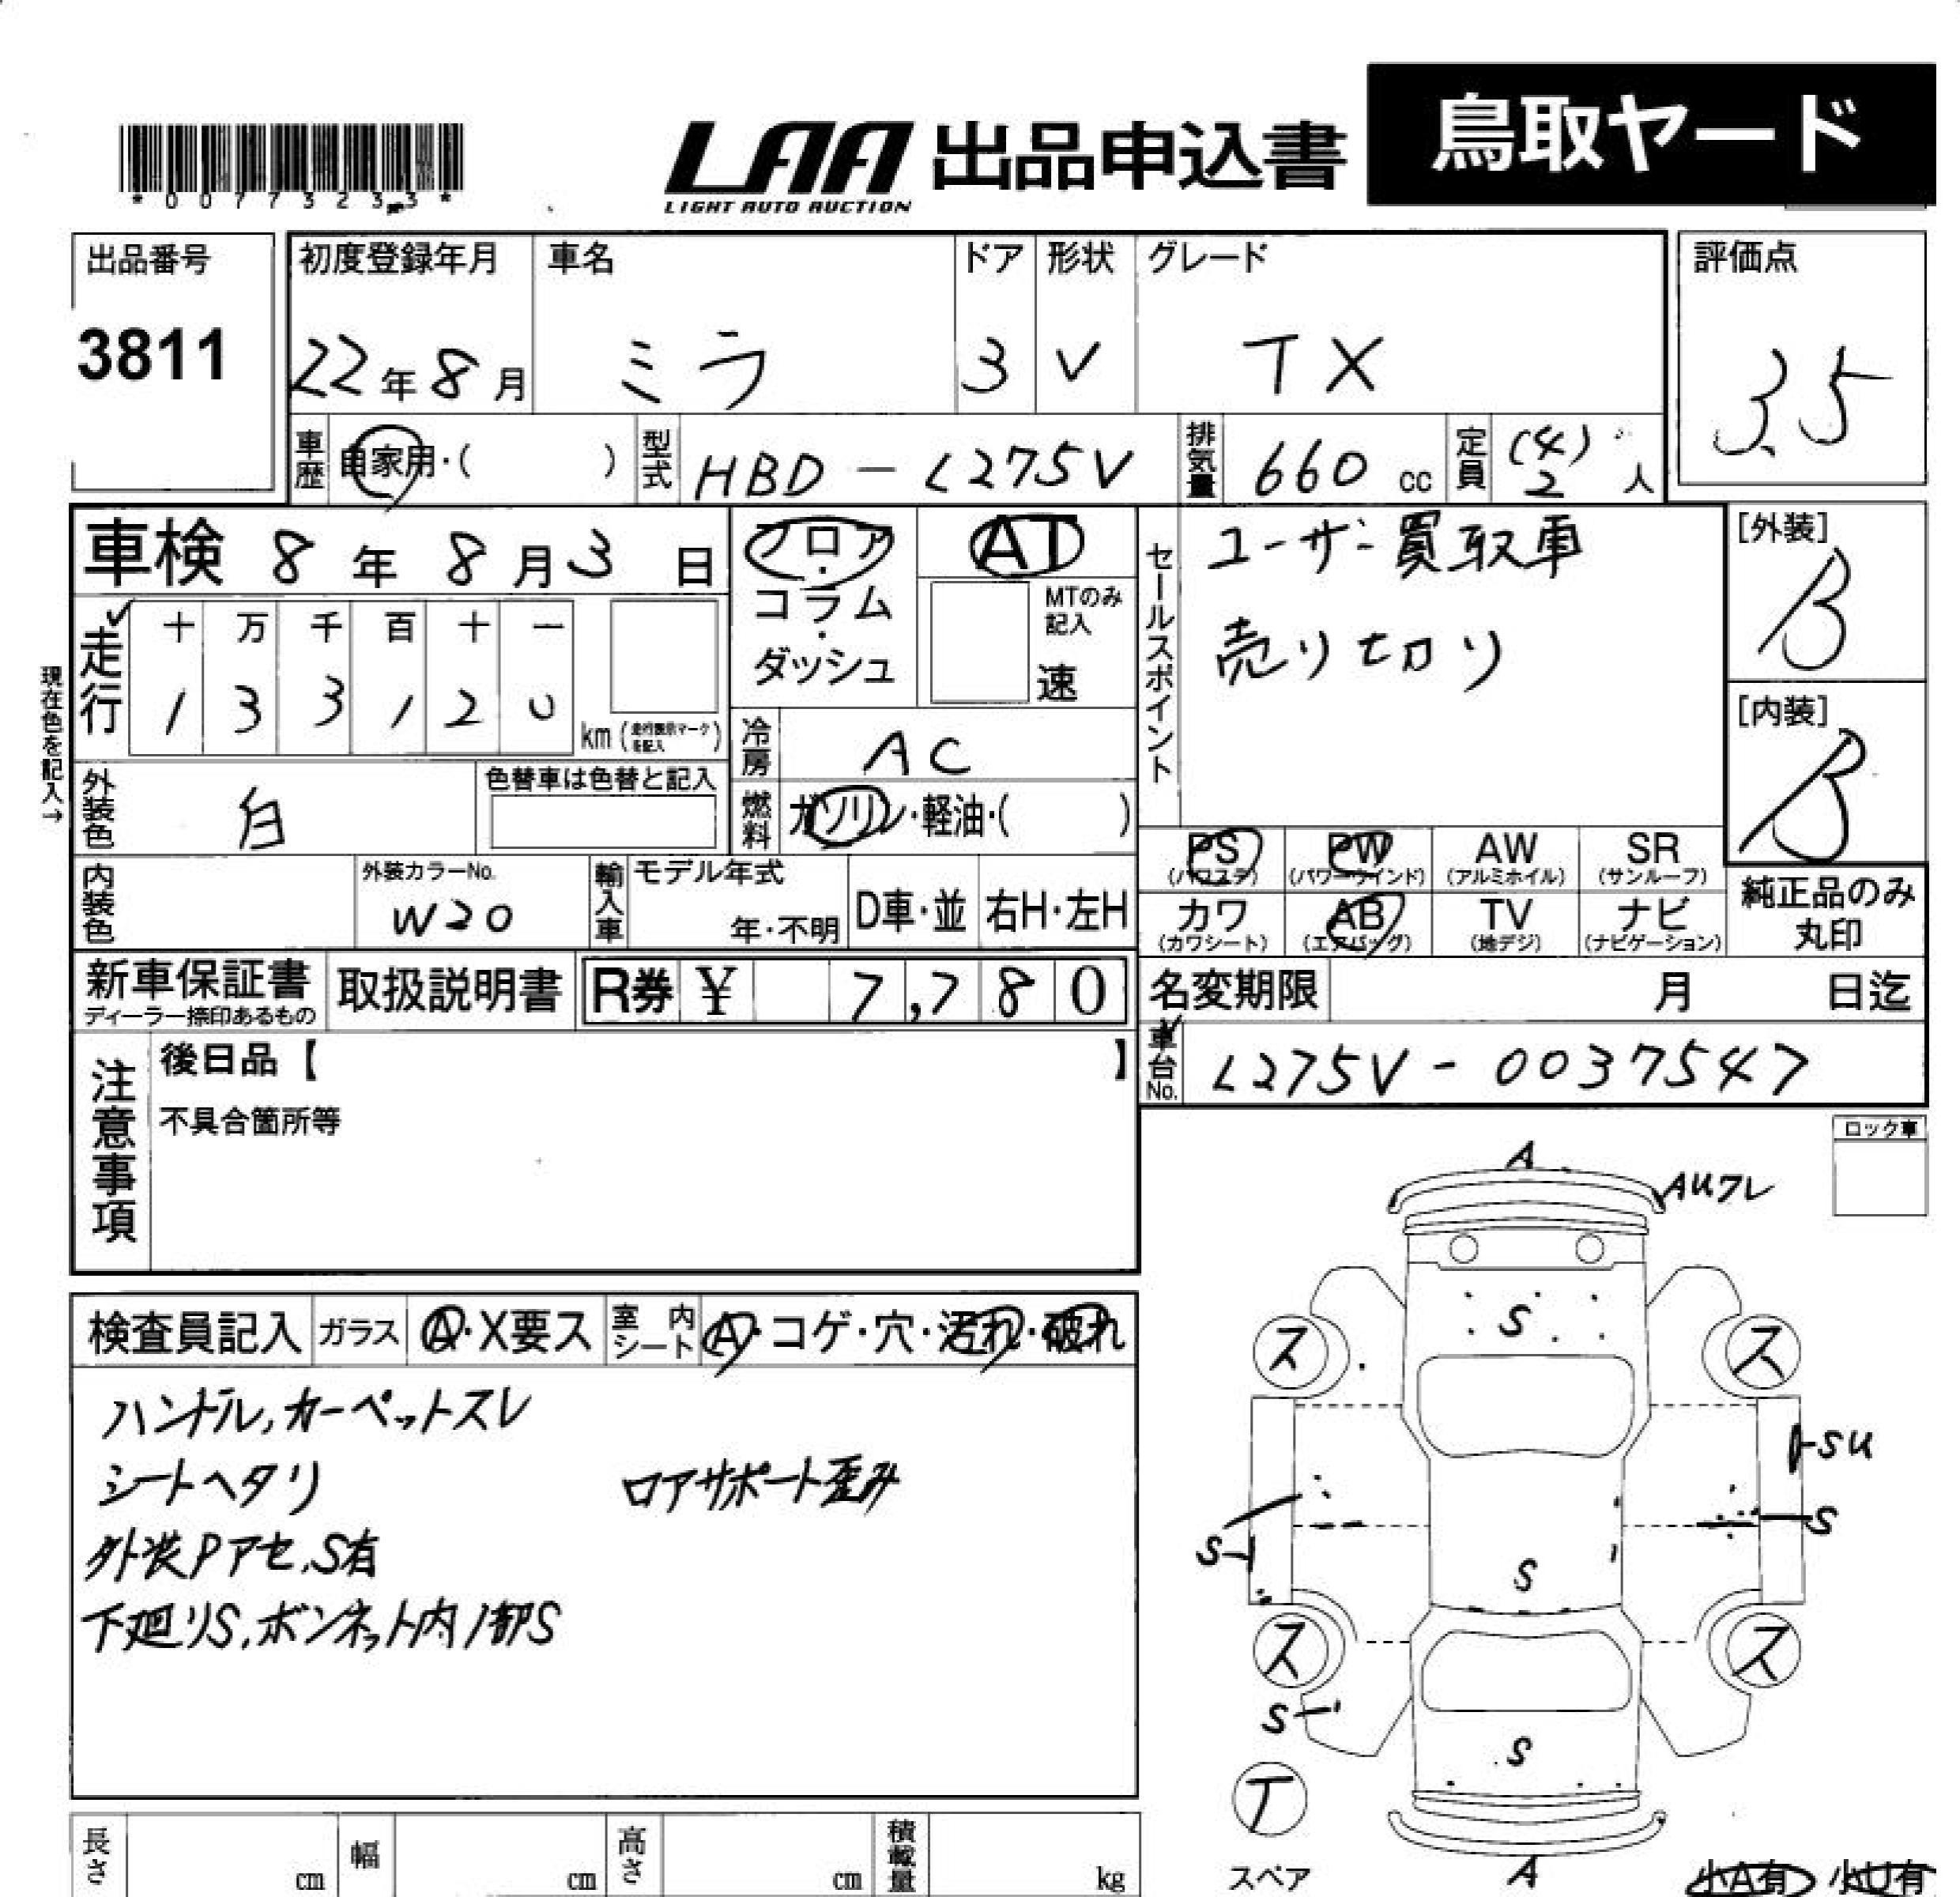 *00773233*
LAA 出品申込書 鳥取ヤード
LIGHT AUTO AUCTION
出品番号 初度登録年月 車名 ドア 形状 グレード 評価点
3811 22年8月 ミラ 3 V TX 3.5
車歴 自家用・( ) 型式 HBD-L275V 排気量 660 cc 定員 (4) 2 人
車検 8年8月3日 フロア・コラム・ダッシュ AT
MTのみ記入 速
セールスポイント
ユーザー買取車
売り切り
[外装]
B
[内装]
B
現在色を記入→
走行 十 万 千 百 十 一
1 3 3 1 2 0 km (走行表示マークを記入)
冷房 AC
外装色 白 色替車は色替と記入
燃料 ガソリン・軽油・( )
PS (パワステ) PW (パワーウインド) AW (アルミホイル) SR (サンルーフ)
カワ (カワシート) AB (エアバッグ) TV (地デジ) ナビ (ナビゲーション)
純正品のみ丸印
内装色 外装カラーNo. W20 輸入車 モデル年式 年・不明 D車・並 右H・左H
新車保証書 ディーラー捺印あるもの 取扱説明書 R券 ¥ 7,780
名変期限 月 日迄
車台No. L275V-0037547
注意事項
後日品【 】
不具合箇所等
ロック車
検査員記入 ガラス A・X要ス 室内シート A・コゲ・穴・汚れ・破れ
ハンドル,カーペットスレ
シートヘタリ ロアサポート歪み
外装Pアセ,S有
下廻りS,ボンネット内部S
A
AUワレ
S
ス ス
SU
S
S
S
ス ス
S
S
T
スペア
A
小A有 小U有
長さ cm 幅 cm 高さ cm 積載量 kg